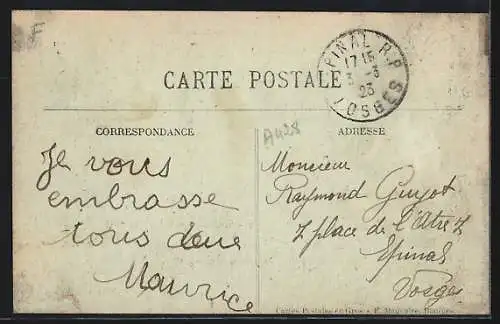 F
EPINAL R.P.
17 15
3 -3
23
VOSGES
CARTE POSTALE
CORRESPONDANCE
ADRESSE
A428
Je vous
embrasse
tous deux
Maurice
Moncieur
Raymond Guyot
7 place de l'Atre 7
Epinal
Vosges
Cartes Postales en Gros